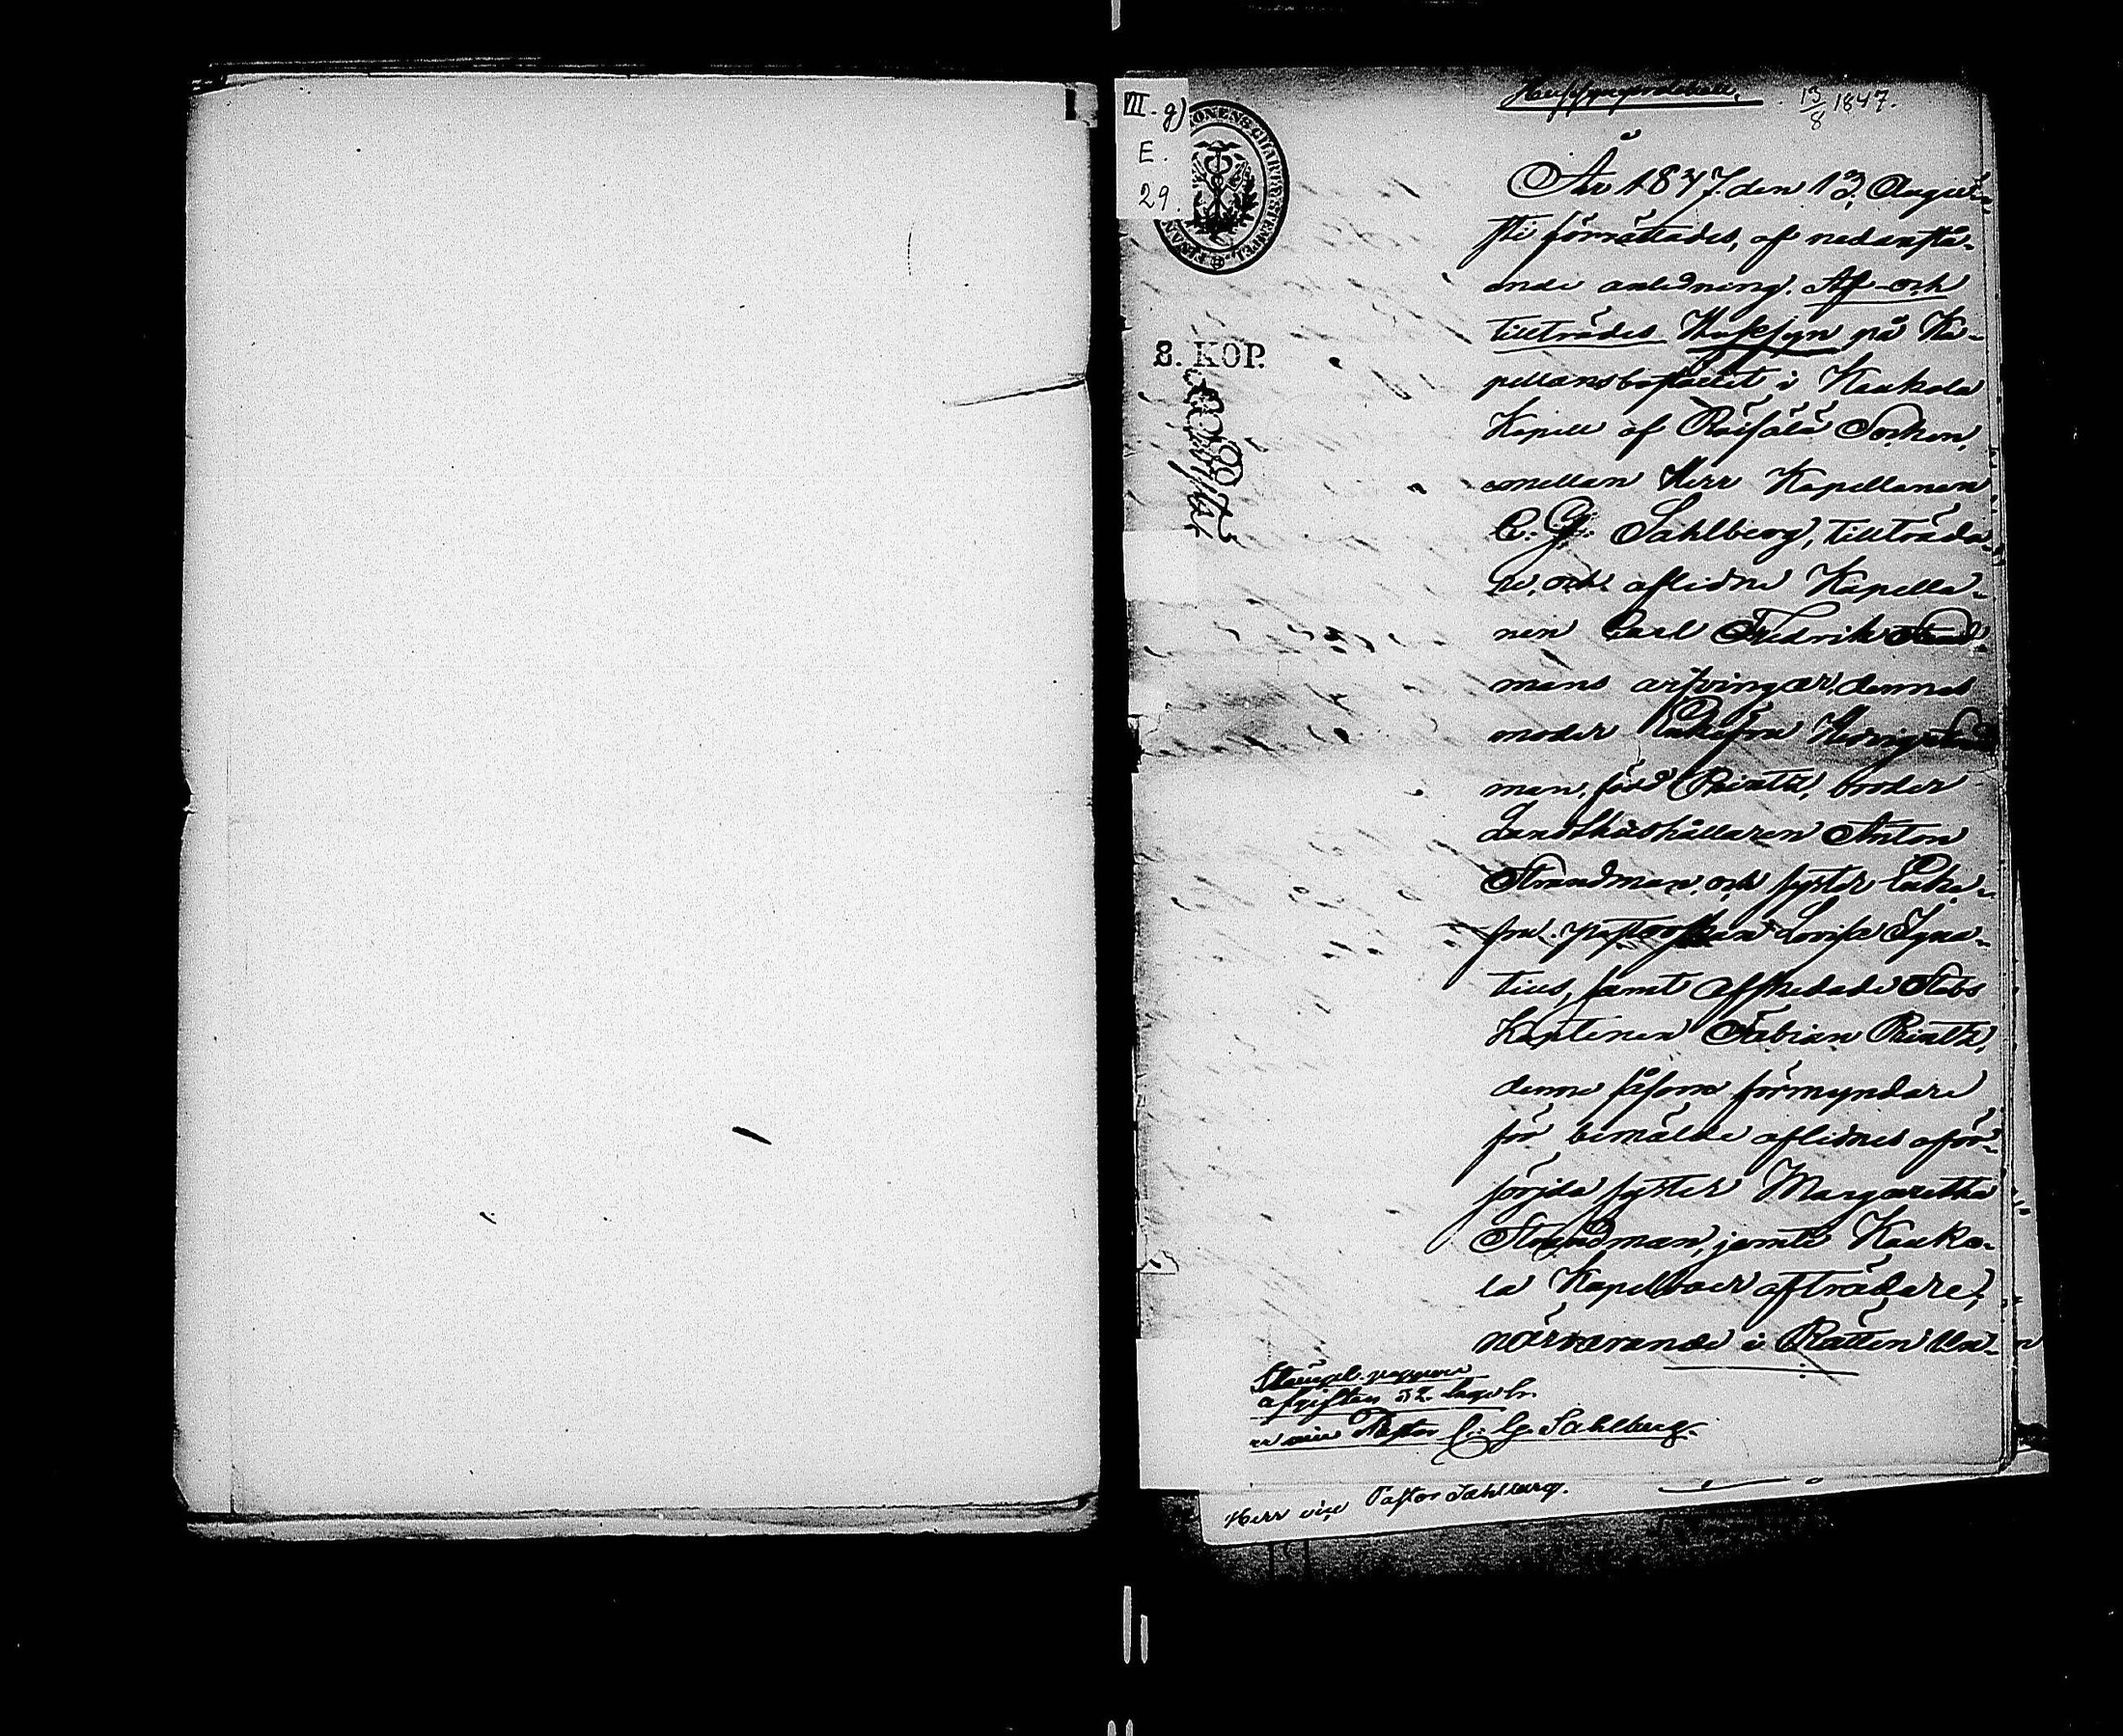 Hussynsprotokoll. 13/8 1847.
VII. g)
E.
29.
8. KOP.
År 1847 den 13 Augu-
sti förrättades, af nedanstå-
ende anledning, Af- och
tillträdes Hussyn på Ka-
pellansbostället i Kaukola
Kapell af Räisälä Socken,
emellan Herr Kapellanen
C. G. Sahlberg, tillträda-
re, och aflidne Kapella-
nen Carl Fredrik Strand-
mans arfvingar, dennes
moder Enkefru Strand-
man, född Reintz, broder
Landshushållaren Anton
Strandman, och syster Enke-
fru Pastorskan Lovisa Igna-
tius, samt affskedade Stabs
Kaptenen Fabian Reintz,
denne såsom förmyndare
för bemälde aflidnes oför-
sörjda syster Margaretha
Strandman, jemte Kauko-
la Kapelboer afträdare;
närvarande i Rätten Un-
Stämpel pappers
afgiften 32
Pastor C. G. Sahlberg.
Herr vice Pastor Sahlberg.